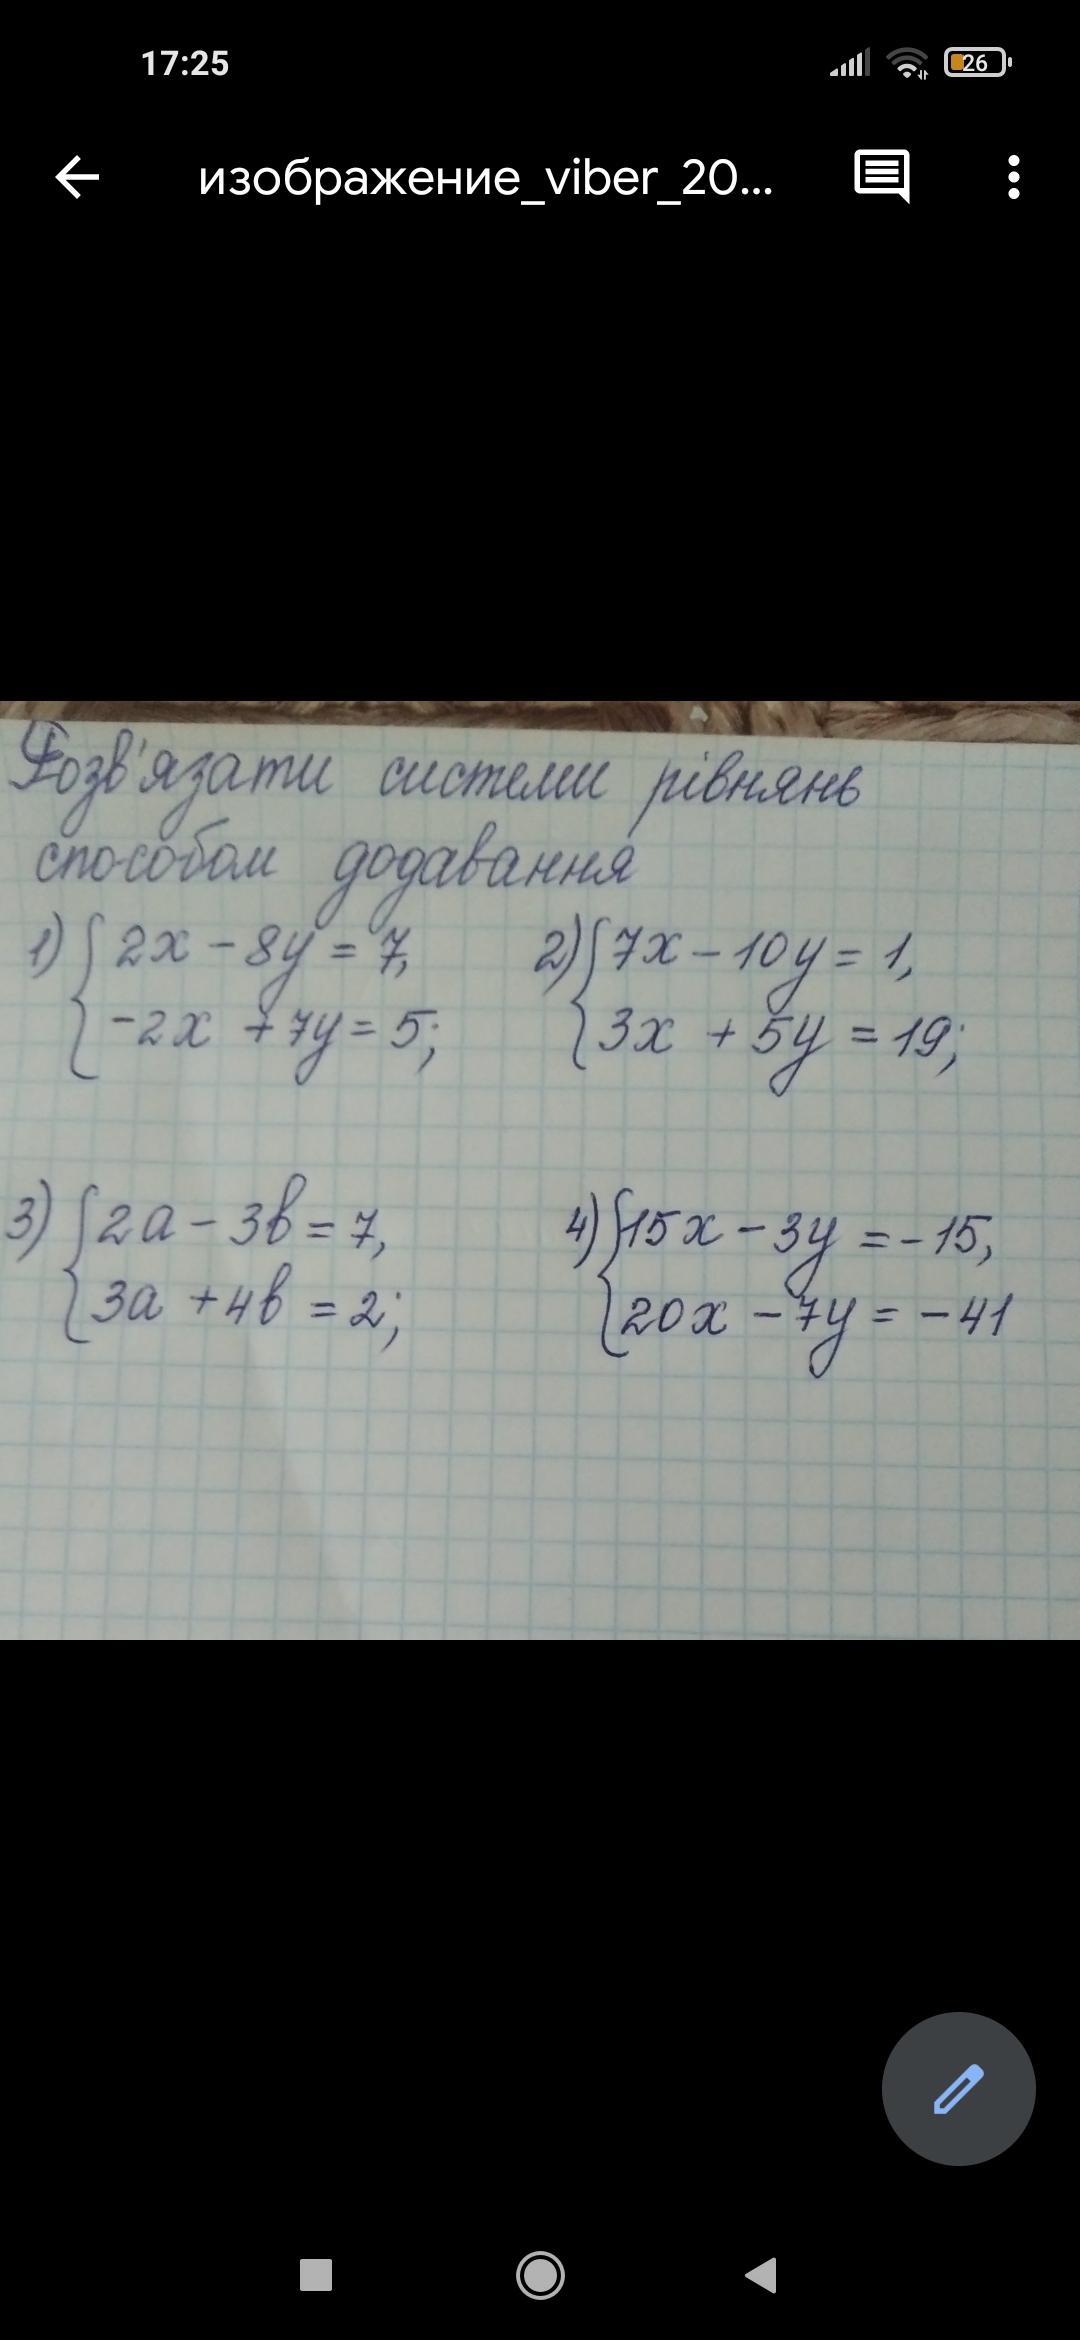 17:25
26
изображение_viber_20...
Розв'язати системи рівнянь
способом додавання
1) { 2x - 8y = 7,
-2x + 7y = 5;
2) { 7x - 10y = 1,
3x + 5y = 19;
3) { 2a - 3b = 7,
3a + 4b = 2;
4) { 15x - 3y = -15,
20x - 7y = -41